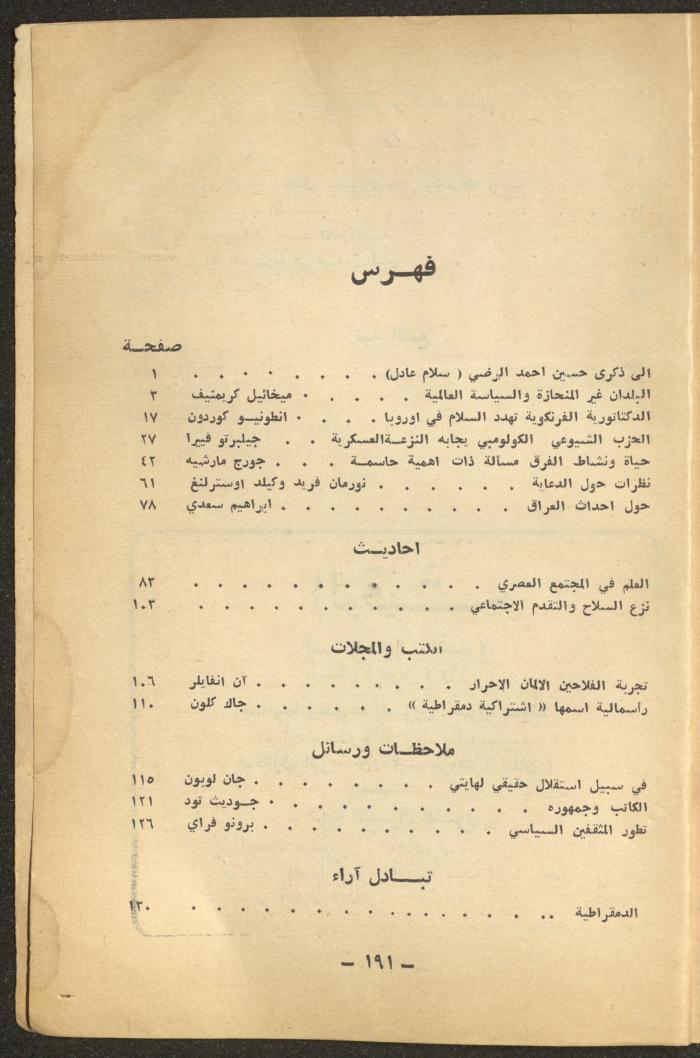 فهرس
صفحة
الى ذكرى حسين احمد الرضي ( سلام عادل) . . . . . . . . . ١
البلدان غير المنحازة والسياسة العالمية . . . . . ميخائيل كريمنيف ٣
الدكتاتورية الفرنكوية تهدد السلام في اوروبا . . . . انطونيو كوردون ١٧
الحزب الشيوعي الكولومبي يجابه النزعة العسكرية . . جيلبرتو فييرا ٢٧
حياة ونشاط الفرق مسألة ذات اهمية حاسمة . . . جورج مارشيه ٤٢
نظرات حول الدعاية . . . . . . نورمان فريد وكيلد اوسترلنغ ٦١
حول احداث العراق . . . . . . . . . . ابراهيم سعدي ٧٨
احاديث
العلم في المجتمع العصري . . . . . . . . . . . . ٨٣
نزع السلاح والتقدم الاجتماعي . . . . . . . . . . . . ١٠٣
الكتب والمجلات
تجربة الفلاحين الالمان الاحرار . . . . . . . . . آن انفايلر ١٠٦
رأسمالية اسمها « اشتراكية دمقراطية » . . . . . . . جاك كلون ١١٠
ملاحظات ورسائل
في سبيل استقلال حقيقي لهايتي . . . . . . . . جان لوبون ١١٥
الكاتب وجمهوره . . . . . . . . . . . جوديث تود ١٢١
تطور المثقفين السياسي . . . . . . . . . . برونو فراي ١٢٦
تبادل آراء
الدمقراطية .. . . . . . . . . . . . . . . . ١٣٠
– ١٩١ –